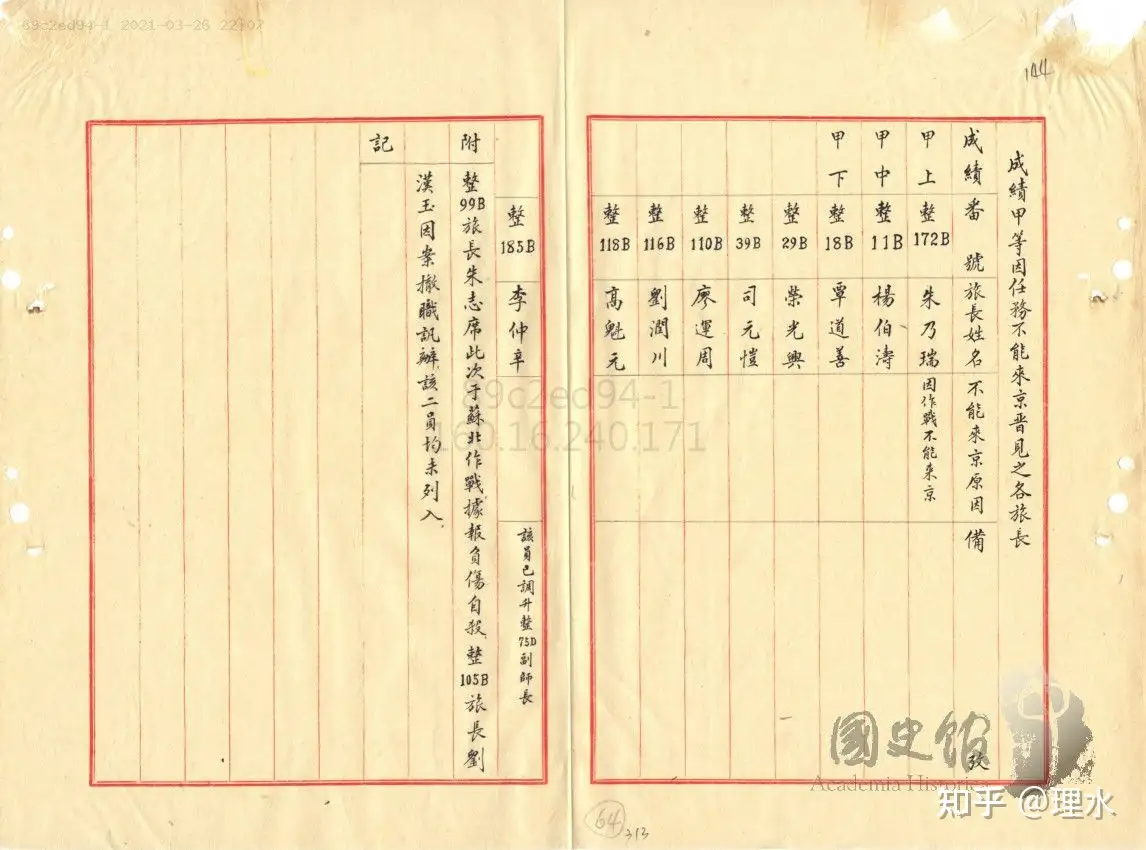 89c2ed94-1 2021-03-26 22:07
144
成績甲等因任務不能來京晋見之各旅長
成績 番號 旅長姓名 不能來京原因 備攷
甲上 整172B 朱乃瑞 因作戰不能來京
甲中 整11B 楊伯濤
甲下 整18B 覃道善
整29B 榮光興
整39B 司元愷
整110B 廖運周
整116B 劉潤川
整118B 高魁元
整185B 李仲辛 該員已調升整75D副師長
附記
整99B旅長朱志席此次于蘇北作戰據報負傷自殺整105B旅長劉
漢玉因案撤職訊辦該二員均未列入
89c2ed94-1
160.16.240.171
國史館
Academia Historica
知乎 @理水
64
313